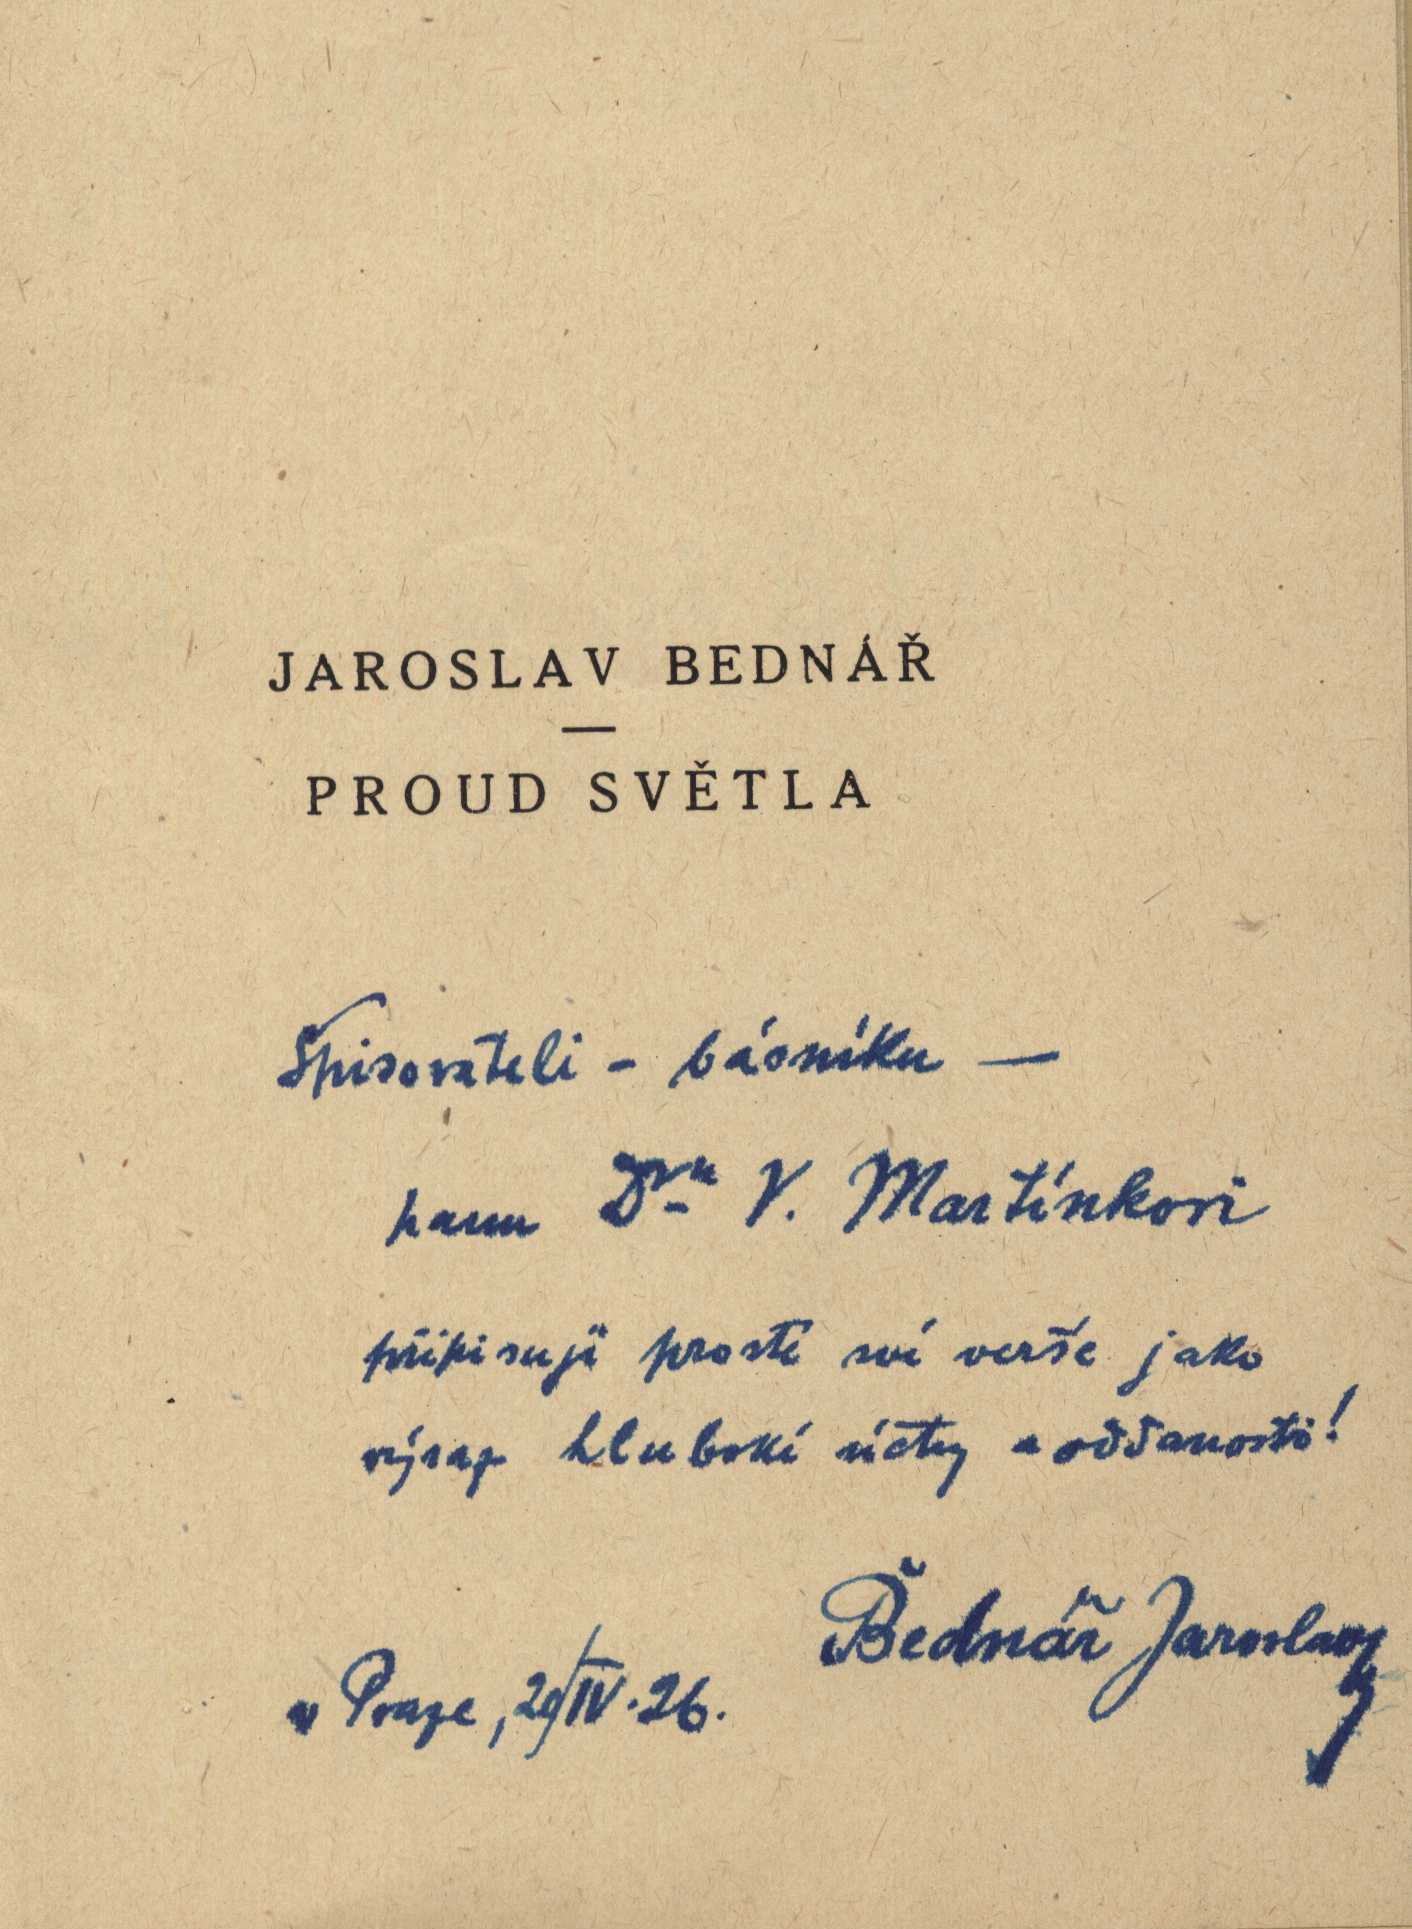 JAROSLAV BEDNÁŘ
—
PROUD SVĚTLA
Spisovateli – básníku —
panu Dru V. Martínkovi
připisuji prosté své verše jako
výraz hluboké úcty a oddanosti!
Bednář Jaroslav
v Praze, 29/IV. 26.